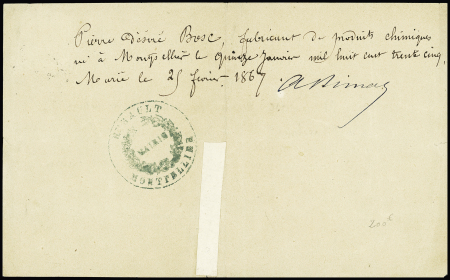 Pierre Désiré Bosc, fabricant de produits chimiques
né à Montpellier le quinze Janvier mil huit cent trente cinq,
Marié le 25 févr. 1867
HÉRAULT
MAIRIE
MONTPELLIER